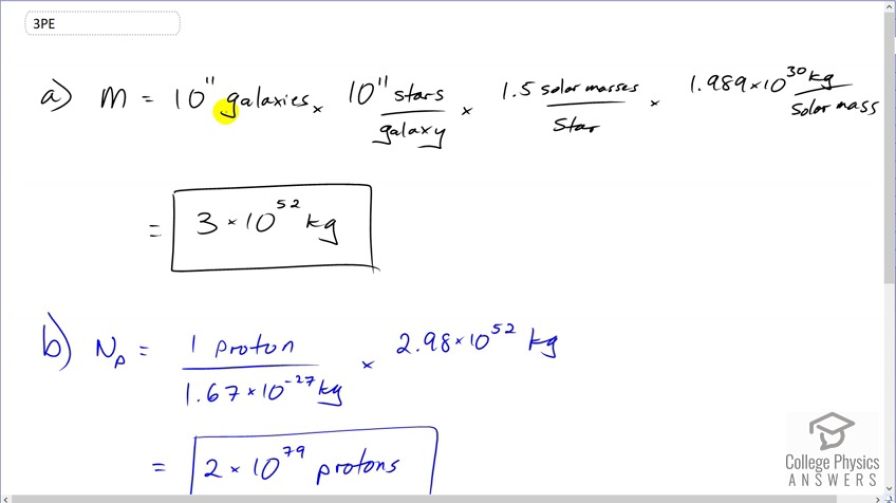 3PE
a) m = 10¹¹ galaxies × 10¹¹ stars/galaxy × 1.5 solar masses/star × 1.989×10³⁰ kg/solar mass
= 3 × 10⁵² kg
b) Nₚ = 1 proton/1.67×10⁻²⁷ kg × 2.98×10⁵² kg
= 2 × 10⁷⁹ protons
College Physics
ANSWERS